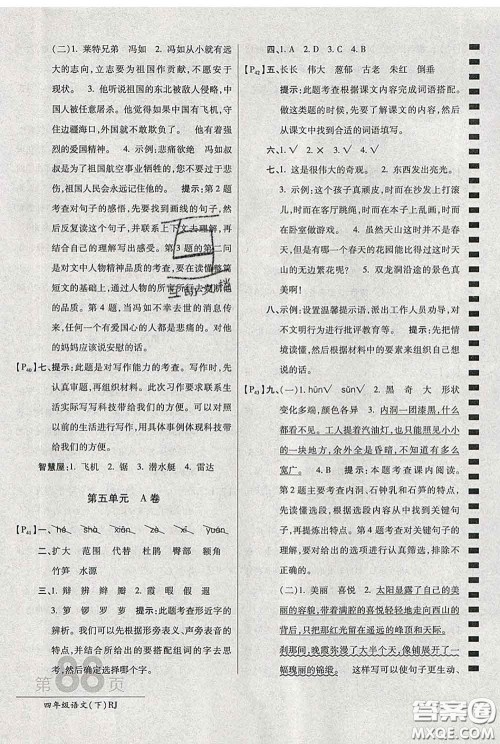 (二)1. 莱特兄弟　冯如　2. 冯如从小就有远
大的志向,立志要为祖国作贡献,不愿屈服
于现状。　3. 他听说祖国的东北被敌人侵略,中
国人被任意屠杀。他想如果中国有飞机,
守住边疆海口,外国就不敢欺负中国了。
4. 示例:悲痛欲绝　5. 示例:冯如叔
叔是为了祖国航空事业牺牲的,他很伟大,
祖国人民会永远记住他的。　提示:第2题
考查对句子的感悟,先找出画线的句子,然
后反复读句子,并联系上下文去理解,再
结合自己的理解写出感受。第3题的第二问
是对文中人物精神品质的考查,要在读懂整篇
短文的基础上,通过人物的所言所行去分析人
物形象。第4题,当冯如去世的消息传
来,一个有爱国心的人都是悲痛的。可以对他
的妈妈应该说安慰的话。
[P40]七、提示:此题是对写作能力的考查。写作时,先
认真审题,再组织材料。此次习作要求联系生
活实际写写科技带给我们的变化。可以对照
以前的生活进行写作,用具体事例体现科技带
给我们的影响。
智慧屋:1. 飞机　2. 锯　3. 潜水艇　4. 雷达
第五单元　A卷
[P41]一、hé　shà　xiōn　zè　xī
二、扩大　范围　代替　杜鹃　臀部　额角
竹笋　水源
三、1. 辩　辨　辫　瓣　2. 霞　暇　假　遐
3. 箩　锣　啰　萝　提示:此题考查形近字的
辨析。可以根据形旁表义、声旁表音的
特点,并结合所给出的要搭配组词的字去思
考,然后确定选择哪个字。
第88页
四年级语文(下)RJ
四、1. A　2. D　3. D　4. B
[P42]五、长长　伟大　葱郁　古老　朱红　倒垂
提示:此题考查根据课文内容完成词语搭配。
做这类题的时候,要先了解课文的内容,然后
从课文中找到合适的词语填写。
六、1. √　2. √　3. ×
七、1. 这是很伟大的奇观。　2. 东西发出亮光。
3. 示例:这个孩子真顽皮,时而在沙发上打滚
儿,时而在客厅跳绳,时而在桌上画乌龟,时而
在卧室做游戏。　4. 示例:虽然天山这时并不
是春天,但是有哪一个春天的花园能比得过天山
的无边繁花呢?　5. 双龙洞沿途的景色真
美啊!
八、示例:设置温馨提示语,派出工作人员劝导,对
不文明行为进行批评教育等。　提示:把自己放
进情境,根据材料中的要素来组织自己想
说的话。
[P43]九、(一)1. hūn√　sǔn√　2. 黑　奇　大　形状
变化多端,颜色各异　3. 内洞一团漆黑,什么
都看不见。工人提着汽油灯,也只能照见小小
的一块地方,余外全是昏暗,不知道有多么
宽广。　4. B　提示:本题考查课内阅读。
第2题要了解内洞、石钟乳和石笋的特点,先从
文中找到相关句子,对句子中关键词进行提炼,
再提炼出特点。第4题考查对关键句子的
理解,要对给出的选项进行认真筛选,选择
正确的。
(二)1. 美丽　喜悦　2. 太阳显露了自己的
美丽的容貌,满腔的喜悦挂在西山的背
后,那时那红光留在打扮得漂漂亮亮的天际。
刹那间,晚霞弥漫了整个天空,好像给天空铺了一
幅瑰丽的锦缎。　这样写可以使句子更生动、